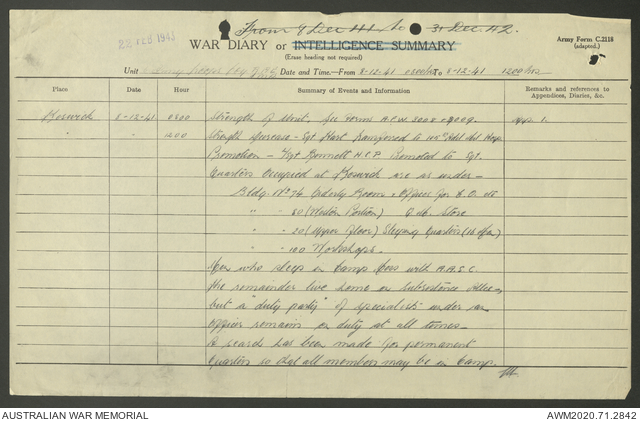 From 8 Dec 41 to 31 Dec 42.
22 FEB 1943
WAR DIARY or INTELLIGENCE SUMMARY.
(Erase heading not required)
Army Form C.2118
(adapted.)
Unit Date and Time—From 8-12-41 0800hrs To 8-12-41 1200hrs
Place Date Hour Summary of Events and Information Remarks and references to Appendices, Diaries, &c.
Keswick 8-12-41 0800 Strength of Unit. See Forms A.F.W. 3008 & 3009. App. 1.
" " 1200 Strength decrease - Sgt Hart transferred to Hosp.
Promotion - L/Sgt Bonnett H.C.P. Promoted to Sgt.
Quarters Occupied at Keswick are as under-
Bldg. No 74 Orderly Room & Officer for
" " 80 (Portion) Q.M. Store
" " 20 (Upper Floor) Sleeping Quarters
" " 100 Workshops.
Men who sleep in Camp Mess with A.A.S.C.
The remainder live home on Subsistence
but a "duty party" of specialists under an
Officer remains on duty at all times-
A search has been made for permanent
Quarters so that all members may be in Camp.
AUSTRALIAN WAR MEMORIAL
AWM2020.71.2842